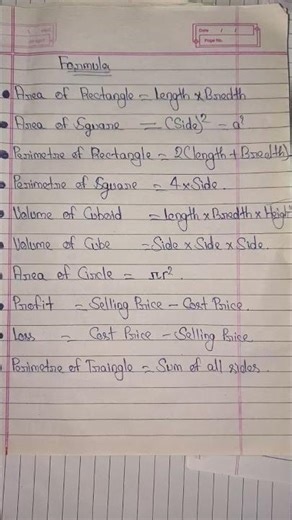 Date / /
Page No.
Formula
• Area of Rectangle = length × Breadth
• Area of Square = (Side)² = a²
• Perimetre of Rectangle = 2(length + Breadth)
• Perimetre of Square = 4 × Side.
• Volume of Cuboid = length × Breadth × Height
• Volume of Cube = Side × Side × Side.
• Area of Circle = πr².
• Profit = Selling Price – Cost Price.
• Loss = Cost Price – Selling Price.
• Perimetre of Traingle = Sum of all sides.